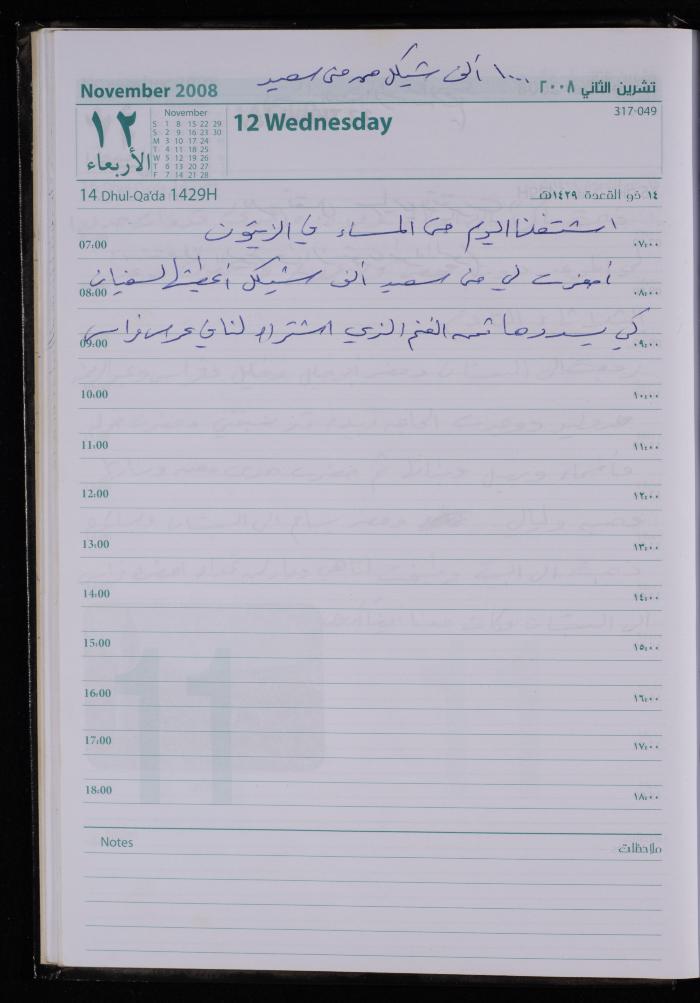 ١٠٠٠ ألف شيكل من منى سعيد
November 2008
تشرين الثاني ٢٠٠٨
١٢
الأربعاء
November
S 1 8 15 22 29
S 2 9 16 23 30
M 3 10 17 24
T 4 11 18 25
W 5 12 19 26
T 6 13 20 27
F 7 14 21 28
12 Wednesday
317-049
14 Dhul-Qa'da 1429H
١٤ ذو القعدة ١٤٢٩هـ
اشتغلنا اليوم حتى المساء في الزيتون
07:00 ٠٧:٠٠
أحضرت لي منى سعيد ألف شيكل أعطيتها لسفيان
08:00 ٠٨:٠٠
كي يسددها ثمن الغنم الذي اشتراه لنا في عرس فراس
09:00 ٠٩:٠٠
10:00 ١٠:٠٠
11:00 ١١:٠٠
12:00 ١٢:٠٠
13:00 ١٣:٠٠
14:00 ١٤:٠٠
15:00 ١٥:٠٠
16:00 ١٦:٠٠
17:00 ١٧:٠٠
18:00 ١٨:٠٠
Notes ملاحظات